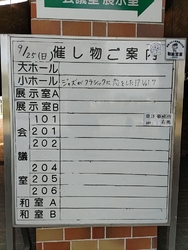 会議室 展示室
9/25(日) 催し物ご案内
大ホール
小ホール ジャズがクラシックに恋をした
展示室A
展示室B
会議室
101
201
202
204
205
206
和室A
和室B